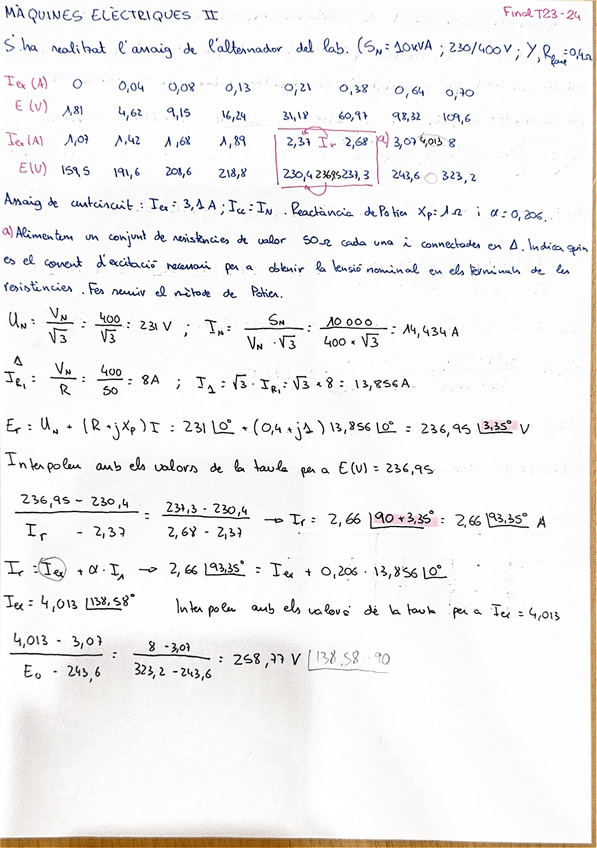 MÀQUINES ELÈCTRIQUES II Final T23-24
S'ha realitzat l'assaig de l'alternador del lab. (S_N = 10kVA ; 230/400V ; Y, R_fase = 0,4Ω
I_ex (A) 0 0,04 0,08 0,13 0,21 0,38 0,64 0,70
E (V) 1,81 4,62 9,15 16,24 31,18 60,97 98,32 109,6
I_ex (A) 1,07 1,42 1,68 1,89 2,37 I_r 2,68 a) 3,07 4,013 8
E (V) 159,5 191,6 208,6 218,8 230,4 236,95 237,3 243,6 323,2
Assaig de curtcircuit : I_ex = 3,1 A ; I_cc = I_N . Reactància de Potier X_P = 1Ω i α = 0,206.
a) Alimentem un conjunt de resistències de valor 50Ω cada una i connectades en Δ. Indica quin
es el corrent d'excitació necessari per a obtenir la tensió nominal en els terminals de les
resistències. Fes servir el mètode de Potier.
U_N = V_N/√3 = 400/√3 = 231 V ; I_N = S_N/(V_N · √3) = 10 000/(400 × √3) = 14,434 A
I_R1^Δ = V_N/R = 400/50 = 8A ; I_1 = √3 · I_R1 = √3 × 8 = 13,856 A
E_r = U_N + (R + jX_P) I = 231 |0° + (0,4 + j1) 13,856 |0° = 236,95 |3,35° V
Interpolem amb els valors de la taula per a E(V) = 236,95
(236,95 - 230,4)/(I_r - 2,37) = (237,3 - 230,4)/(2,68 - 2,37) → I_r = 2,66 |90 + 3,35° = 2,66 |93,35° A
I_r = I_ex + α · I_1 → 2,66 |93,35° = I_ex + 0,206 · 13,856 |0°
I_ex = 4,013 |138,58° Interpolem amb els valors de la taula per a I_ex = 4,013
(4,013 - 3,07)/(E_0 - 243,6) = (8 - 3,07)/(323,2 - 243,6) = 258,77 V |138,58 - 90